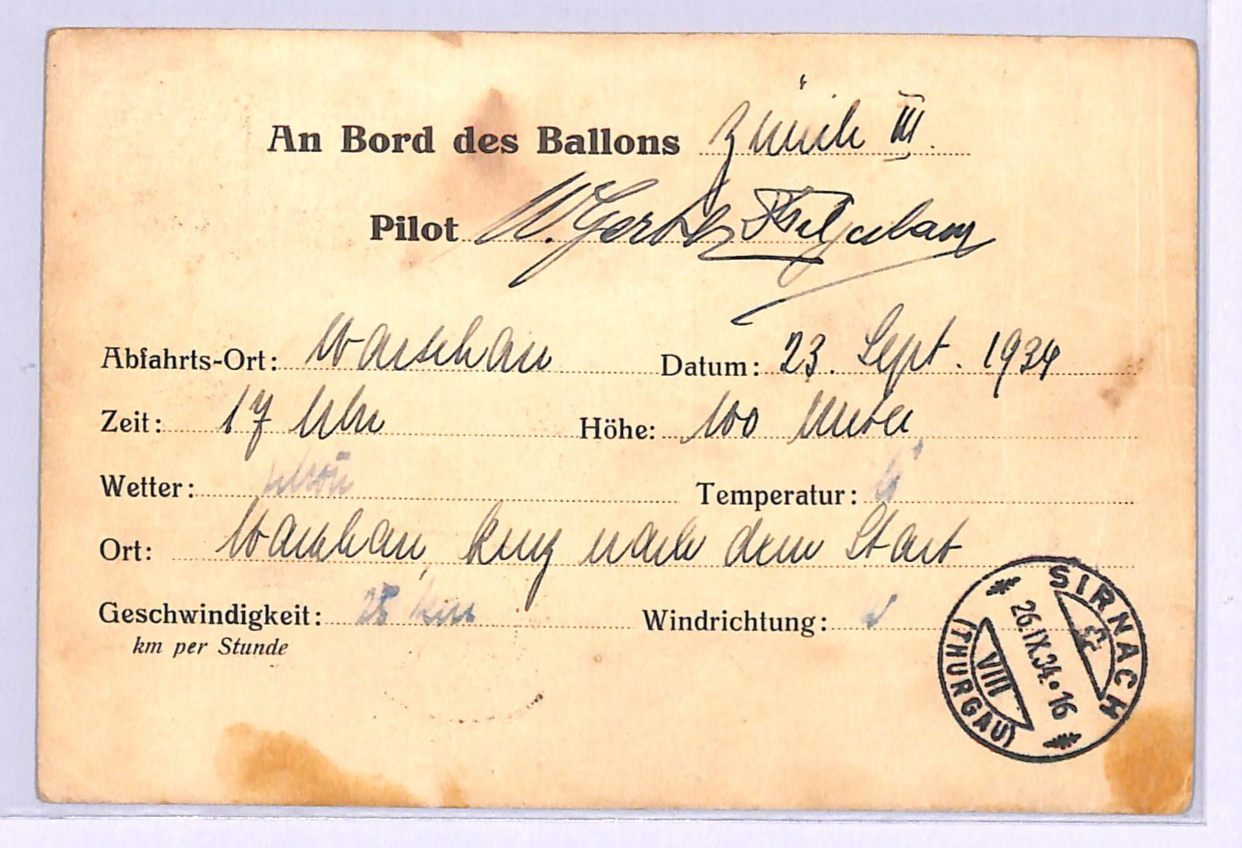 An Bord des Ballons Zürich III.
Pilot W. Gerber
Abfahrts-Ort: Warschau Datum: 23. Sept. 1934
Zeit: 17 Uhr Höhe: 100 Meter
Wetter: schön Temperatur:
Ort: Warschau, kurz nach dem Start
Geschwindigkeit: 25 km Windrichtung:
km per Stunde
SIRNACH
26.IX.34.16
VIII
(THURGAU)